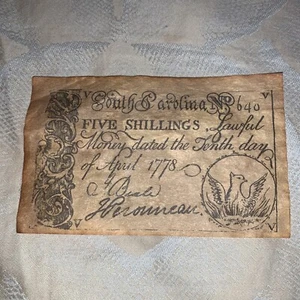 V V
South Carolina No 640
FIVE SHILLINGS, Lawful
Money dated the Tenth day
of April 1778
V V